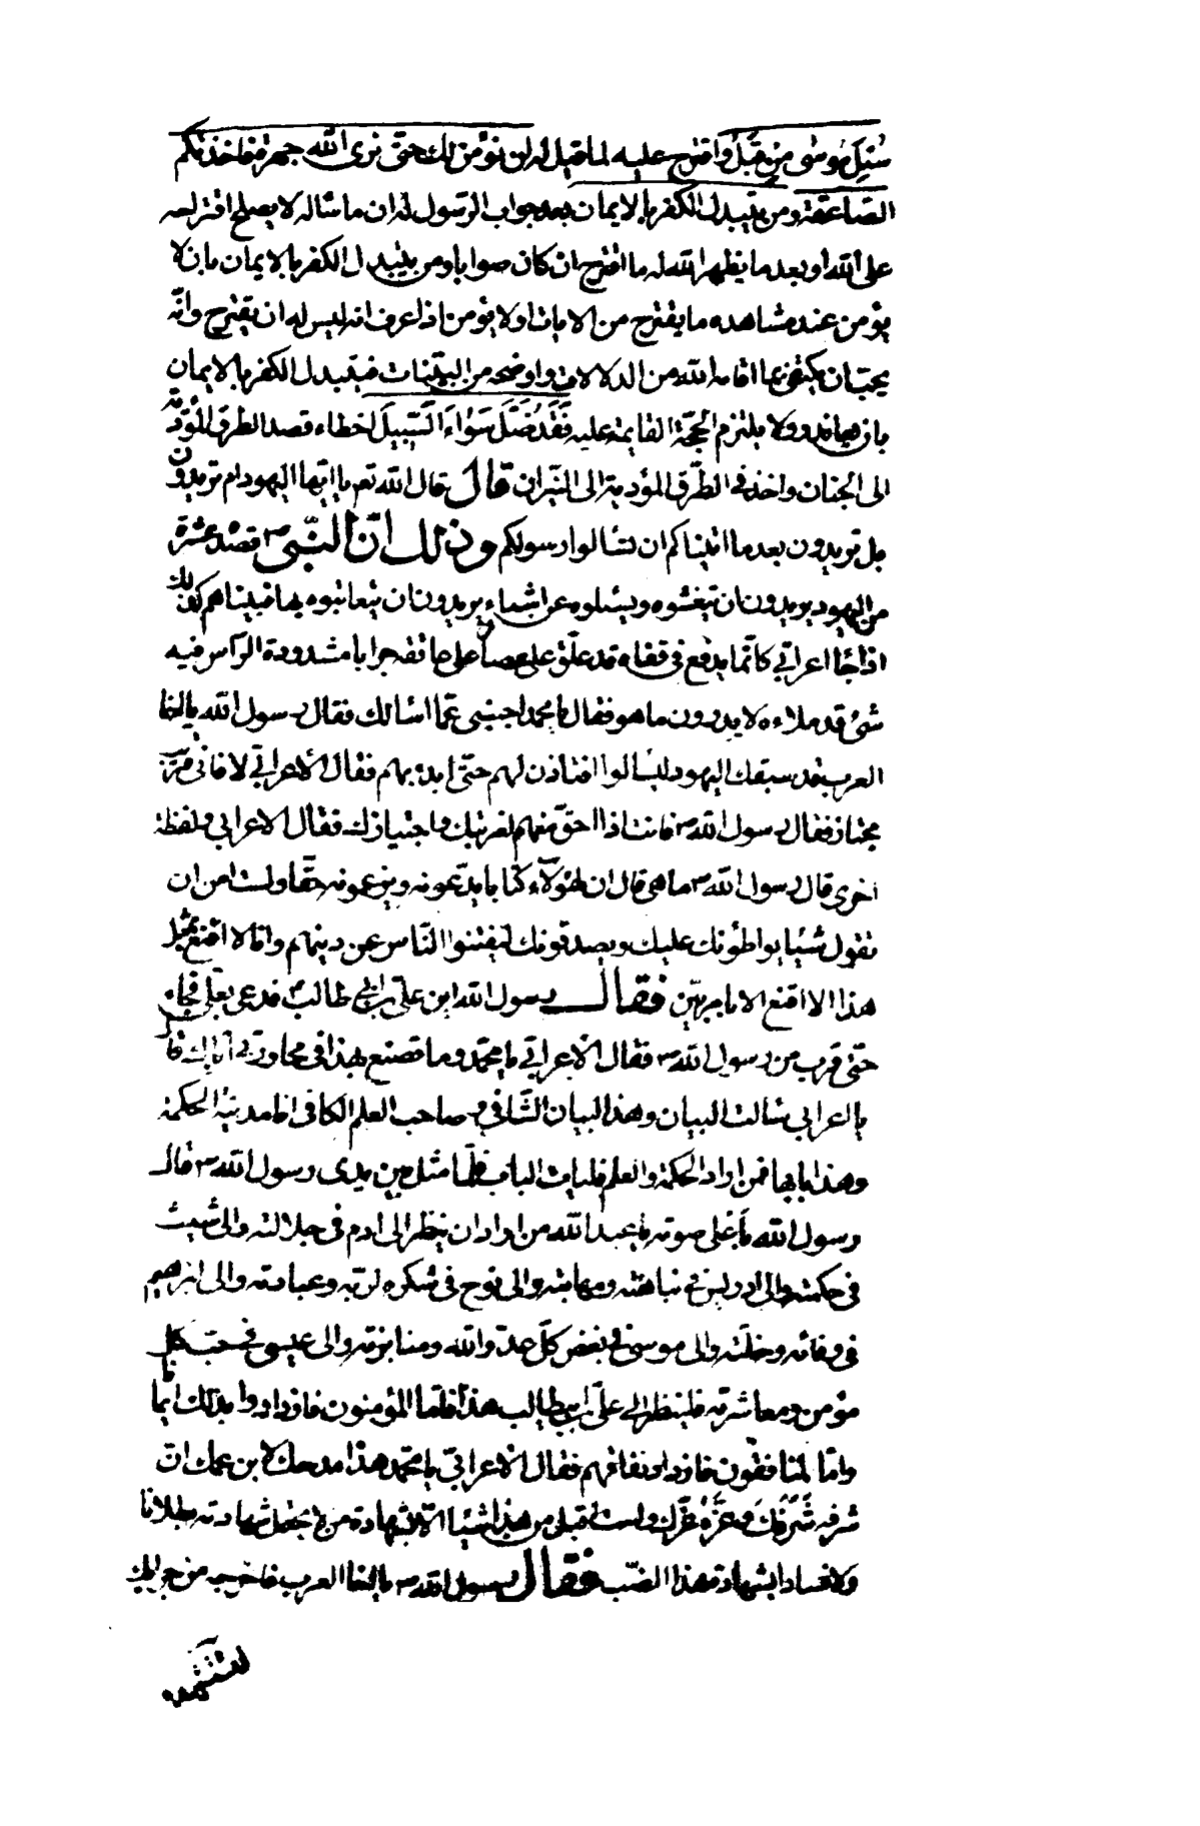 سُئِلَ مُوسٰى مِن قَبْلُ واقترح عليه لما قيل له لن نؤمن لك حتّى نرى الله جهرة فاخذتكم
الصّاعقة ومن يتبدل الكفر بالايمان بعد جواب الرّسول له ان ما ساله لا يصلح اقتراحه
على الله او بعد ما يظهر الله له ما اقترح ان كان صوابا ومن يتبدل الكفر بالايمان بان لا
يؤمن عند مشاهده ما يقترح من الايات او لا يؤمن اذا عرف انه ليس له ان يقترح وانّه
يجب ان يكتفى بما اقامه الله من الدلالات واوضحه من البيّنات فيتبدل الكفر بالايمان
بان يعاند ولا يلتزم الحجّة القايمة عليه فَقَدْ ضَلَّ سَوٰاءَ السَّبِيلَ اخطاء قصد الطرق المؤدّية
الى الجنان واخذ فى الطّرق المؤدية الى النّيران قال قال الله تع يا ايّها اليهود ام تريدون
بل تريدون بعد ما اتيناكم ان تسالوا رسولكم وذلك انّ النّبى ص قصده عشرة
من اليهود يريدون ان يتعنّتوه ويسئلوه عن اشياء يريدون ان يتعانتوه بها فبيناهم كذلك
اذا جاء اعرابي كانّما يدفع فى قفاه قد علّق على عصا على عاتقه جرابا مشدودة الرّاس فيه
شئ قد ملاءه لا يدرون ما هو فقال يا محمد اجبنى عمّا اسالك فقال رسول الله يا اخا
العرب قد سبقك اليهود ليسالوا افتاذن لهم حتّى ابدء بهم فقال الأعرابي لا فانى غريب
مجتاز فقال رسول الله ص فانت اذا احقّ منهم لغربتك واجتيازك فقال الاعرابي ولفظة
اخرى قال رسول الله ص ما هى قال ان هٰؤلآء كتابا يدّعونه ويزعمونه حقّا ولست امن ان
تقول شيئا يواطؤنك عليك ويصدقونك ليفتنوا النّاس عن دينهم وانا لا اقنع بمثل
هذا لا اقنع الا بامر بيّن فقال رسول الله اين علىّ بن ابى طالب ع فدعى بعلّى فجاء
حتّى قرب من رسول الله ص فقال الأعرابي يا محمّد وما تصنع بهذا فى محاورتى ايّاك قال
يا اعرابى سالت البيان وهذا البيان الشّافي و صاحب العلم الكافى انا مدينة الحكمة
وهذا بابها فمن اراد الحكمة والعلم فليات الباب فلمّا مثل بين يدى رسول الله ص قال
رسول الله باعلى صوته يا عباد الله من اراد ان ينظر الى ادم فى جلالته والى شيث
فى حكمته والى ادريس فى نباهته ومهابته والى نوح فى شكره لربّه وعبادته والى ابرهيم
فى وفائه وخلّته والى موسى فى بغض كلّ عدوّ الله ومنابزته والى عيسى فى حب كلّ
مؤمن ومعاشرته فلينظر الى علّى بن ابيطالب هذا فامّا المؤمنون فازدادوا بذلك ايمانا
وامّا المنافقون فازداد نفاقهم فقال الأعرابىّ يا محمّد هذا مدحك لابن عمك انّ
شرفه شَرَفُكَ وعزّه عزّك ولست اقبل من هذا شيئا الّا بشهادة من لا يحتمل شهادته بطلانا
ولا فسادا بشهادة هذا الضّب فقال رسول الله ص يا اخا العرب فاخرجه من جرابك
لتستشهده